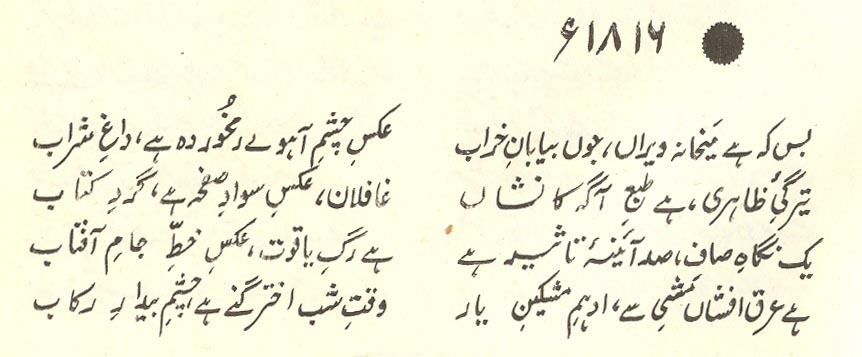 ۱۸۱۶ء
بس کہ ہے مَیخانہ ویراں، جوں بیابانِ خراب عکسِ چشمِ آہوے رم خُوردہ ہے، داغِ شراب
تیرگیِٔ ظاہری، ہے طبعِ آگہ کا نشاں غافلاں، عکسِ سوادِ صفحہ ہے، گردِ کتاب
یک نگاہِ صاف، صد آئینۂ تاثیر ہے ہے رگِ یاقوت، عکسِ خطِّ جامِ آفتاب
ہے عرق افشاں مَشی سے، ادہمِ مشکینِ یار وقتِ شب اختر گنے ہے، چشمِ بیدارِ رکاب